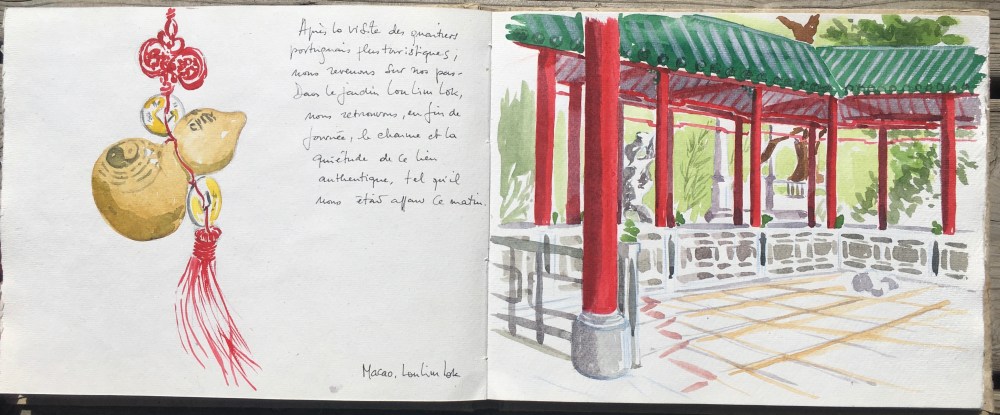 Après la visite des quartiers
portugais plus touristiques,
nous revenons sur nos pas.
Dans le jardin Lou Lim Lok,
nous retrouvons, en fin de
journée, le charme et la
quiétude de ce lieu
authentique, tel qu'il
nous était apparu ce matin.
Macao, Lou Lim Lok